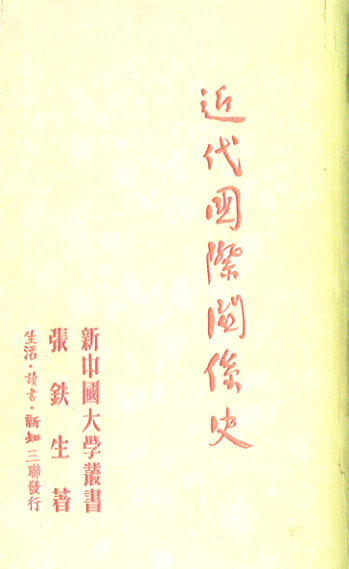 近代國際關係史
新中國大学叢書
張鉄生著
生活·讀書·新知三聯發行